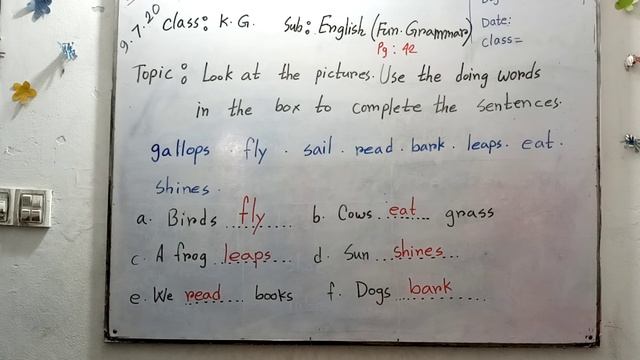 9.7.20 Class: K.G. Sub: English (Fun. Grammar)
Date:
Pg: 42
Class=
Topic: Look at the pictures. Use the doing words
in the box to complete the sentences.
gallops . fly . sail . read . bark . leaps . eat .
shines .
a. Birds fly b. Cows eat grass
c. A frog leaps d. Sun shines
e. We read books f. Dogs bark